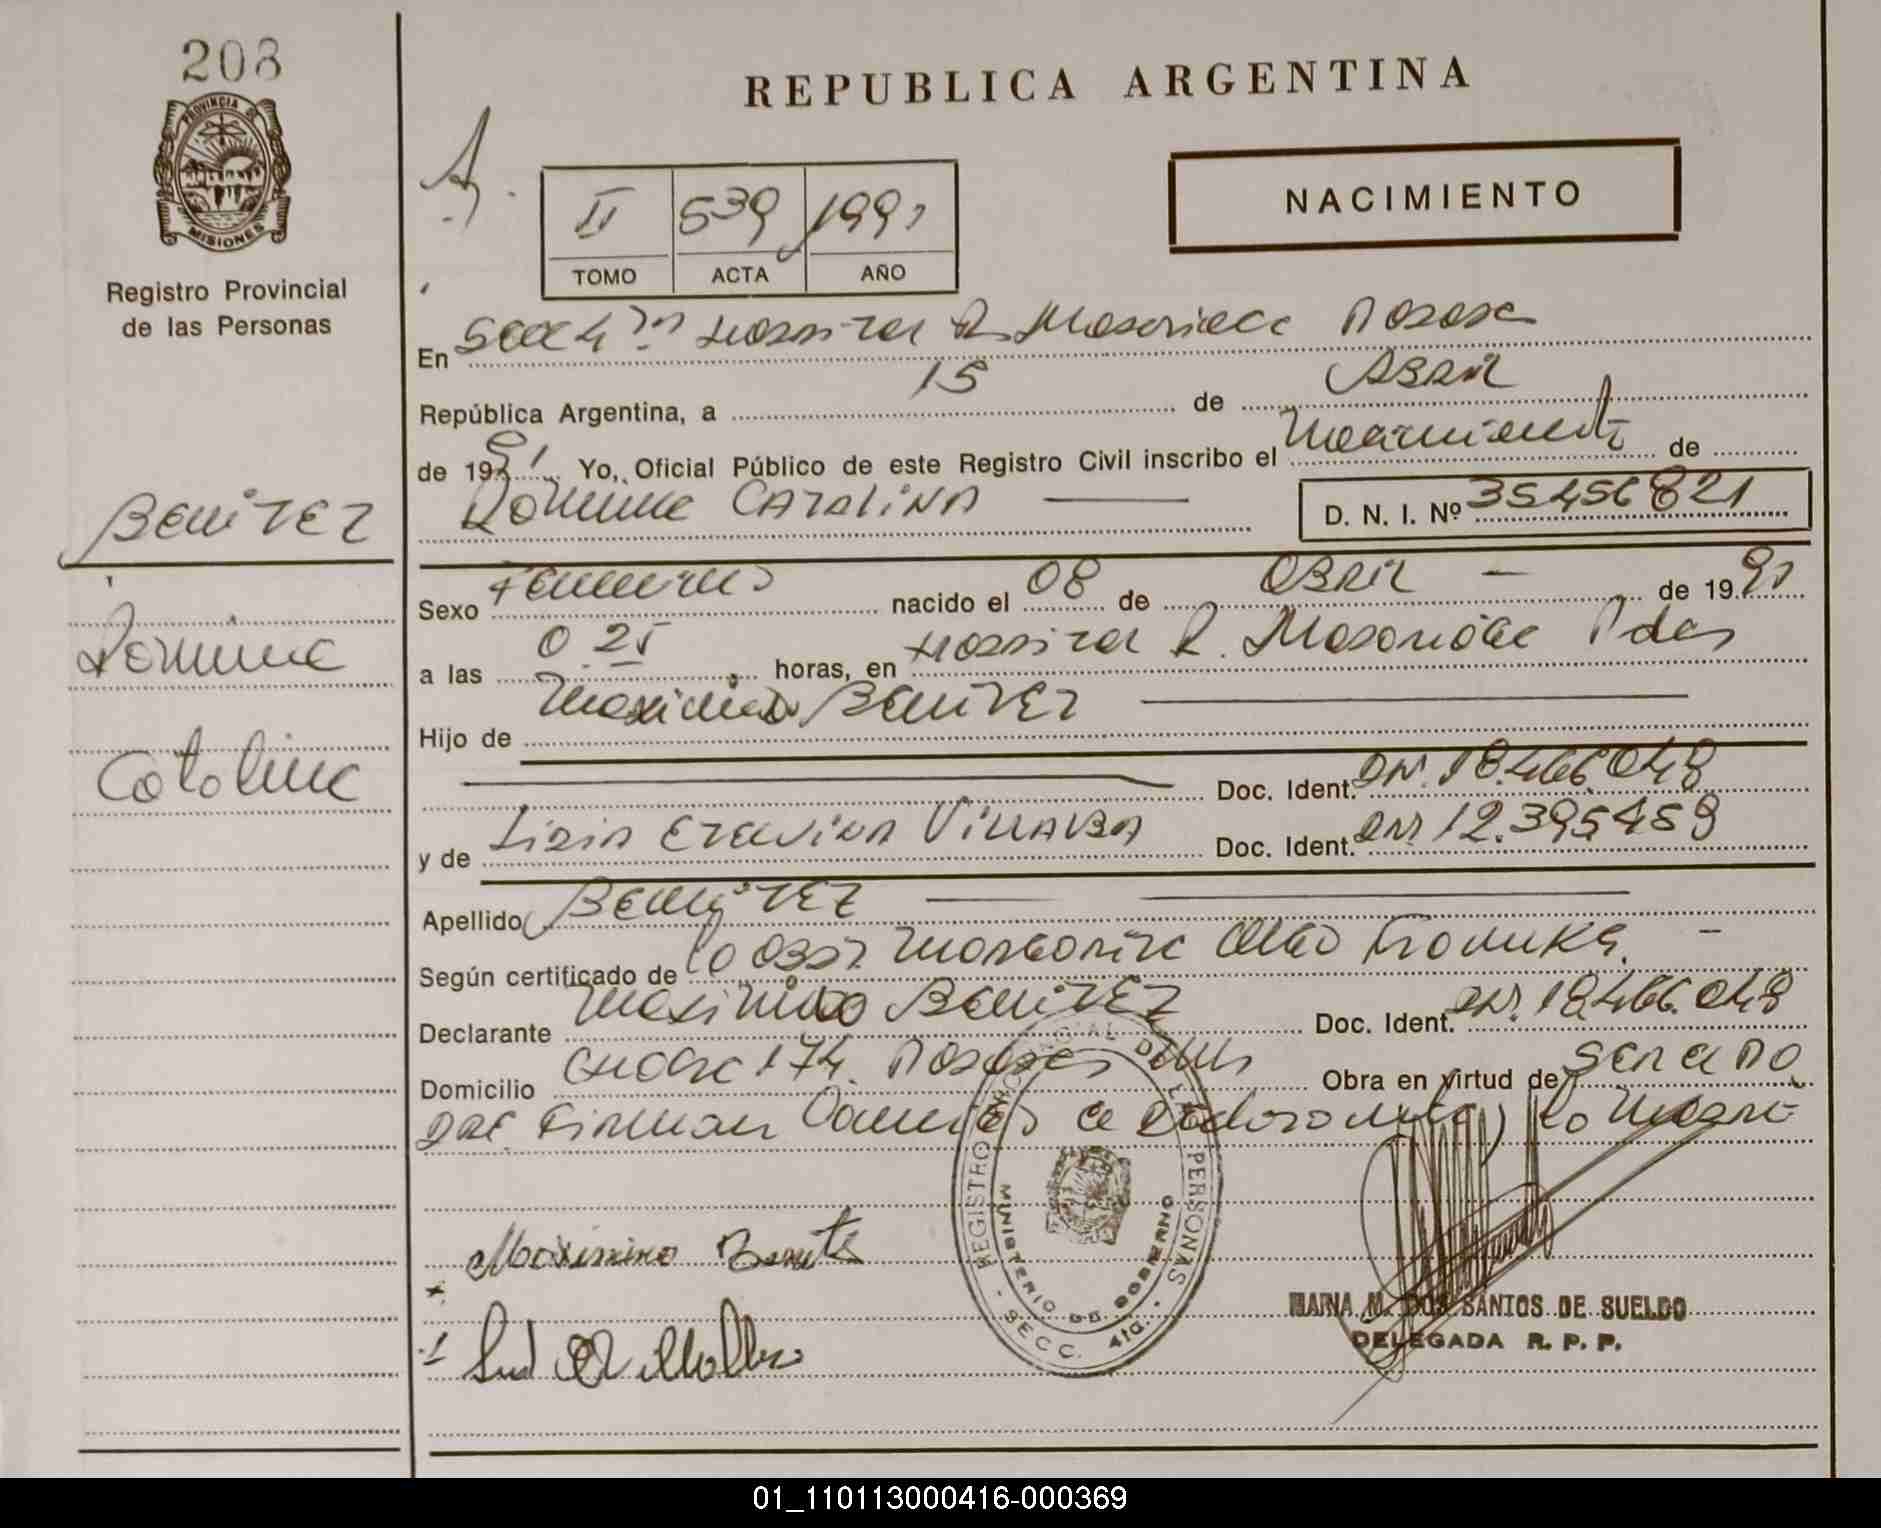 208
PROVINCIA DE
MISIONES
Registro Provincial
de las Personas
REPUBLICA ARGENTINA
NACIMIENTO
II 539 1991
TOMO ACTA AÑO
En Secc 4ta Hospital R. Madariaga Posadas
República Argentina, a 15 de Abril
de 1991 Yo, Oficial Público de este Registro Civil inscribo el Nacimiento de
Romina CATALINA D. N. I. Nº 35456821
BENITEZ
Romina
Catalina
Sexo Femenino nacido el 08 de Abril de 1991
a las 0 25 horas, en Hospital R. Madariaga Pdas
Hijo de Maximino BENITEZ
Doc. Ident. DNI. 18.466.048
y de VILLALBA Doc. Ident. DNI 12.395459
Apellido BENITEZ
Según certificado de la Obst. Margarita
Declarante Maximino BENITEZ Doc. Ident. DNI. 18.466.048
Domicilio 174. Posadas Mns Obra en virtud de
la Madre
Maximino Benitez
REGISTRO PROVINCIAL DE LAS PERSONAS
MINISTERIO DE GOBIERNO
SECC. 4ta.
MARIA M. DOS SANTOS DE SUELDO
DELEGADA R. P. P.
01_110113000416-000369